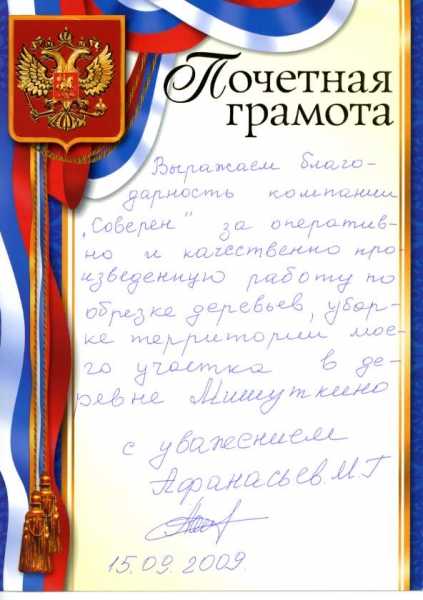 Почетная
грамота
Выражаем благо-
дарность компании
„Соверен" за оператив-
но и качественно про-
изведенную работу по
обрезке деревьев, убор-
ке территории мое-
го участка в де-
ревне Мишуткино
с уважением
Афанасьев. М. Г
15.09.2009.